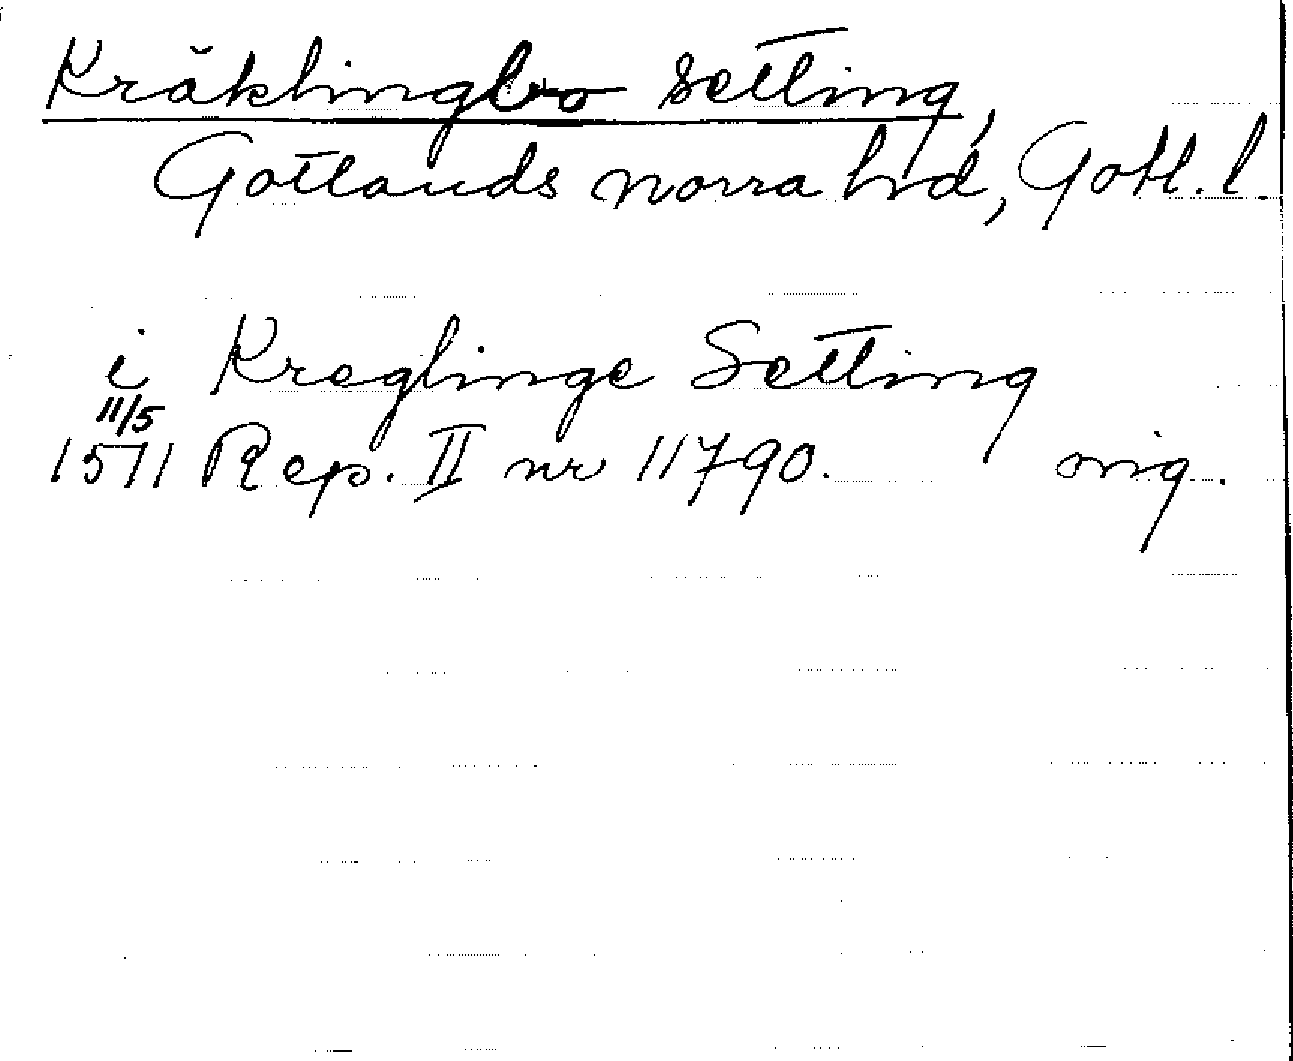 Kräklingbo setting,
Gotlands norra hd, Gotl. l.
i Kreglinge Setting
11/5
1571 Rep. II nr 11790. orig.